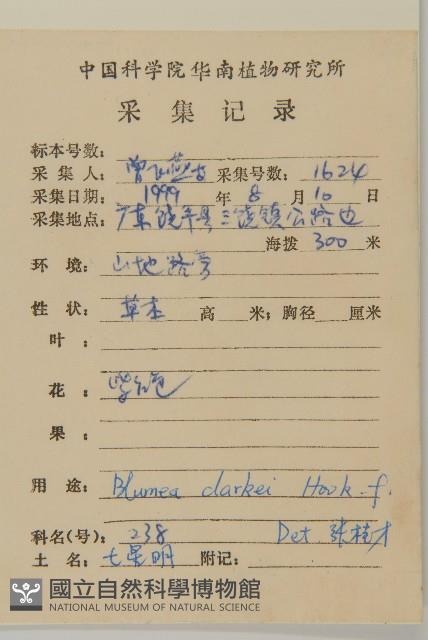 中国科学院华南植物研究所
采集记录
标本号数：
采集人：曾飞燕 采集号数：1624
采集日期：1999年8月10日
采集地点：广东饶平县三饶镇公路边
海拨300米
环境：山地路旁
性状：草本 高 米；胸径 厘米
叶：
花：紫红色
果：
用途：Blumea clarkei Hook.f.
科名(号)：238 Det.张桂才
土名：七星明 附记：
國立自然科學博物館
NATIONAL MUSEUM OF NATURAL SCIENCE